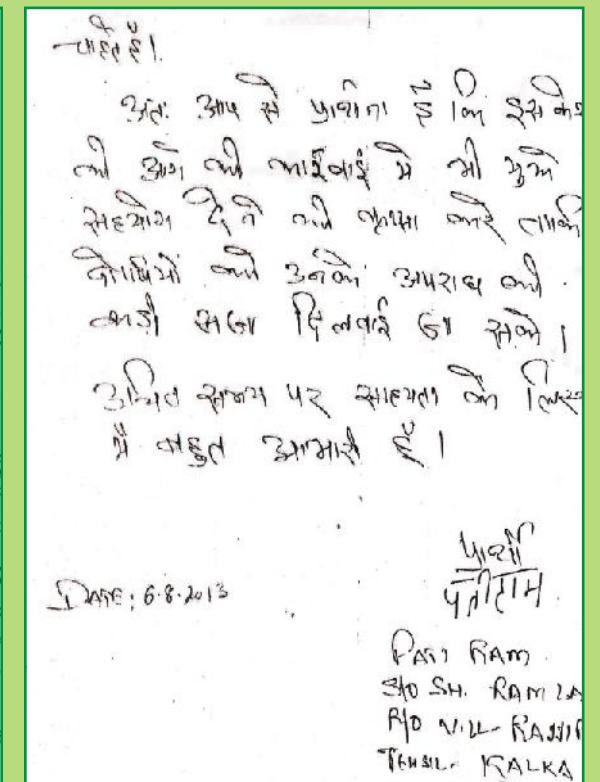 चाहते हैं।
अतः आप से प्रार्थना है कि इस केस
की आगे की कार्रवाई मे भी मुझे
सहयोग देने की कृप्या करे ताकि
दोषियों को उनके अपराध की
कड़ी सजा दिलवाई जा सके।
उचित समय पर साहयता के लिए
मैं बहुत आभारी हूँ।
प्रार्थी
पतीराम
DATE: 6.8.2013
PATI RAM
S/O SH. RAM LA
R/O VILL-
TEHSIL- KALKA